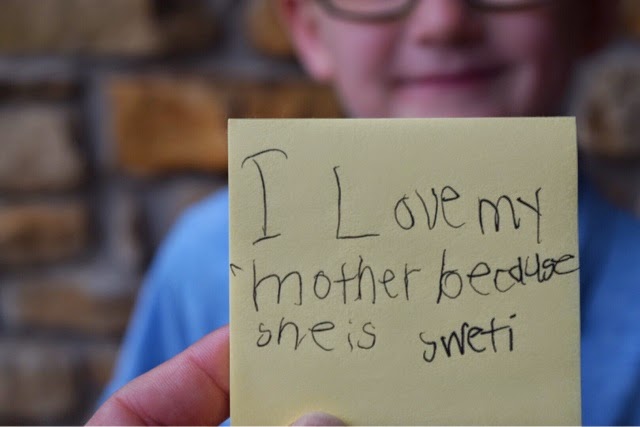 I Love my
mother because
she is sweti